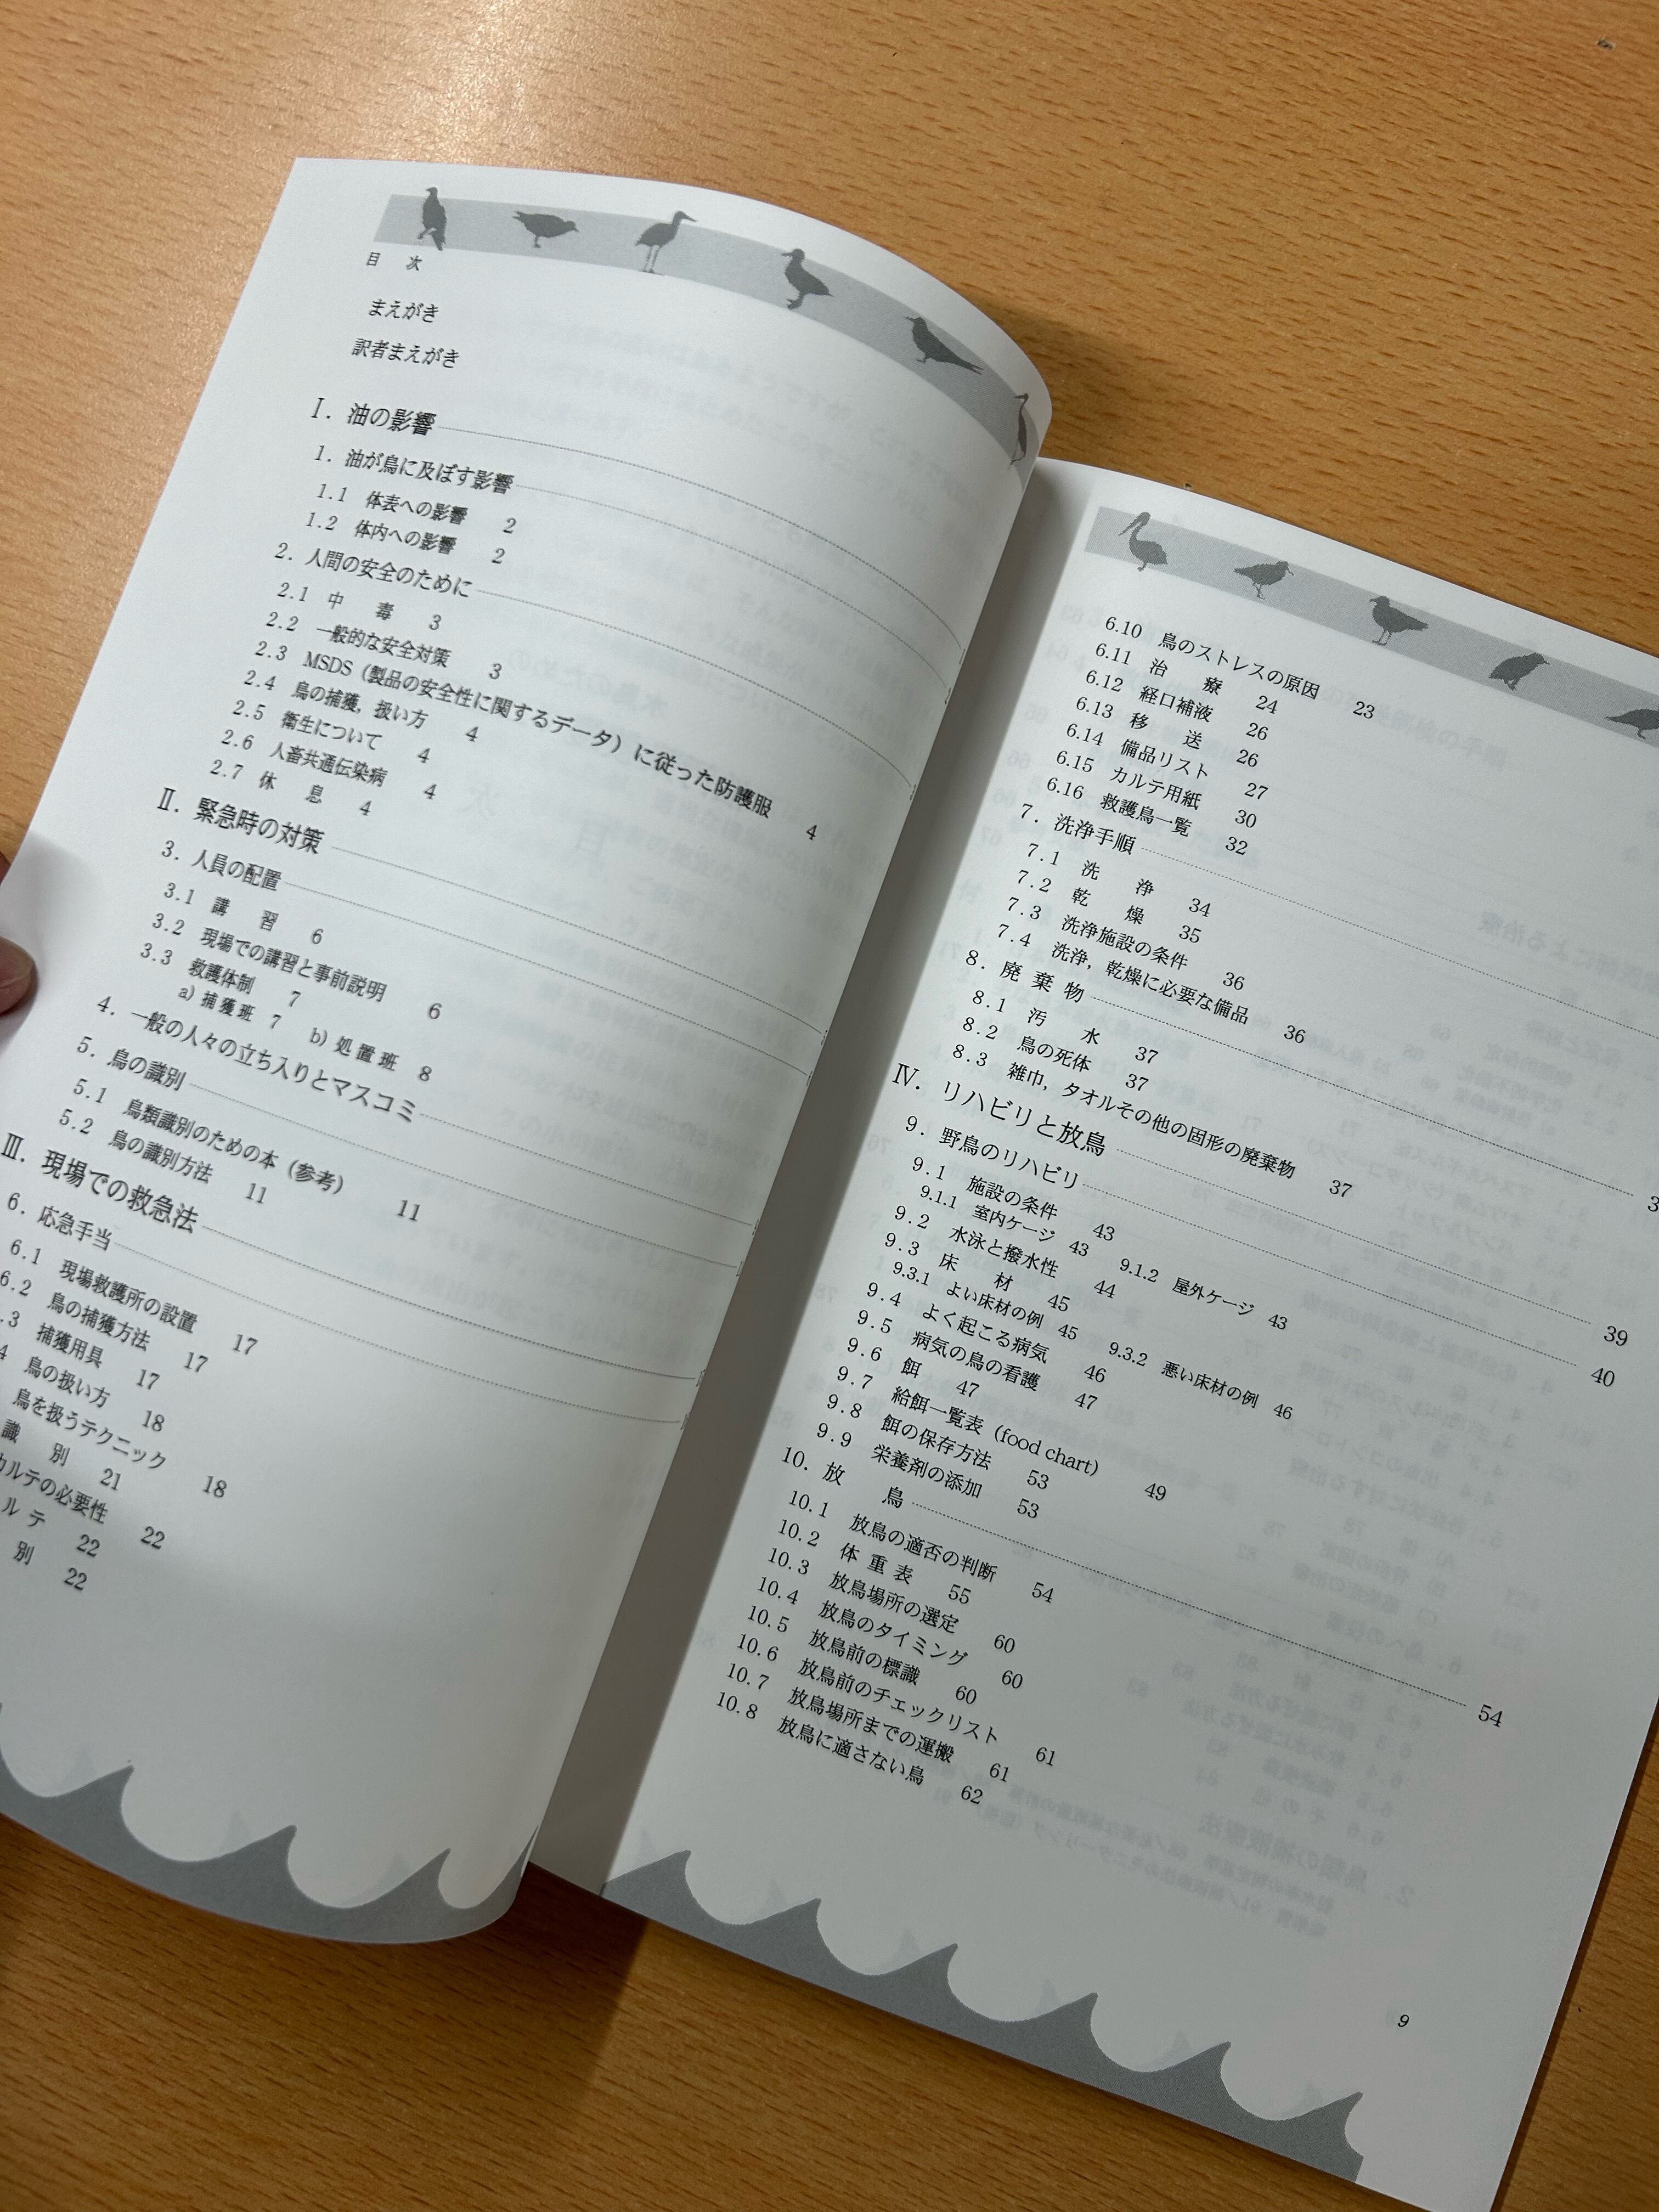 目　次
まえがき
訳者まえがき
Ⅰ. 油の影響
1. 油が鳥に及ぼす影響
1.1 体表への影響 2
1.2 体内への影響 2
2. 人間の安全のために
2.1 中　毒 3
2.2 一般的な安全対策 3
2.3 MSDS（製品の安全性に関するデータ）に従った防護服 4
2.4 鳥の捕獲，扱い方 4
2.5 衛生について 4
2.6 人畜共通伝染病 4
2.7 休　息 4
Ⅱ. 緊急時の対策
3. 人員の配置
3.1 講　習 6
3.2 現場での講習と事前説明 6
3.3 救護体制 7
a) 捕獲班 7 b) 処置班 8
4. 一般の人々の立ち入りとマスコミ
5. 鳥の識別
5.1 鳥類識別のための本（参考） 11
5.2 鳥の識別方法 11
Ⅲ. 現場での救急法
6. 応急手当
6.1 現場救護所の設置 17
6.2 鳥の捕獲方法 17
.3 捕獲用具 17
4 鳥の扱い方 18
鳥を扱うテクニック 18
識　別 21
カルテの必要性 22
ルテ 22
別 22
6.10 鳥のストレスの原因 23
6.11 治　療 24
6.12 経口補液 26
6.13 移　送 26
6.14 備品リスト 27
6.15 カルテ用紙 30
6.16 救護鳥一覧 32
7. 洗浄手順
7.1 洗　浄 34
7.2 乾　燥 35
7.3 洗浄施設の条件 36
7.4 洗浄，乾燥に必要な備品 36
8. 廃棄物
8.1 汚　水 37
8.2 鳥の死体 37
8.3 雑巾，タオルその他の固形の廃棄物 37
Ⅳ. リハビリと放鳥 39
9. 野鳥のリハビリ 40
9.1 施設の条件 43
9.1.1 室内ケージ 43 9.1.2 屋外ケージ 43
9.2 水泳と撥水性 44
9.3 床　材 45
9.3.1 よい床材の例 45 9.3.2 悪い床材の例 46
9.4 よく起こる病気 46
9.5 病気の鳥の看護 47
9.6 餌 47
9.7 給餌一覧表（food chart） 49
9.8 餌の保存方法 53
9.9 栄養剤の添加 53
10. 放　鳥 54
10.1 放鳥の適否の判断 54
10.2 体重表 55
10.3 放鳥場所の選定 60
10.4 放鳥のタイミング 60
10.5 放鳥前の標識 60
10.6 放鳥前のチェックリスト 61
10.7 放鳥場所までの運搬 61
10.8 放鳥に適さない鳥 62
9